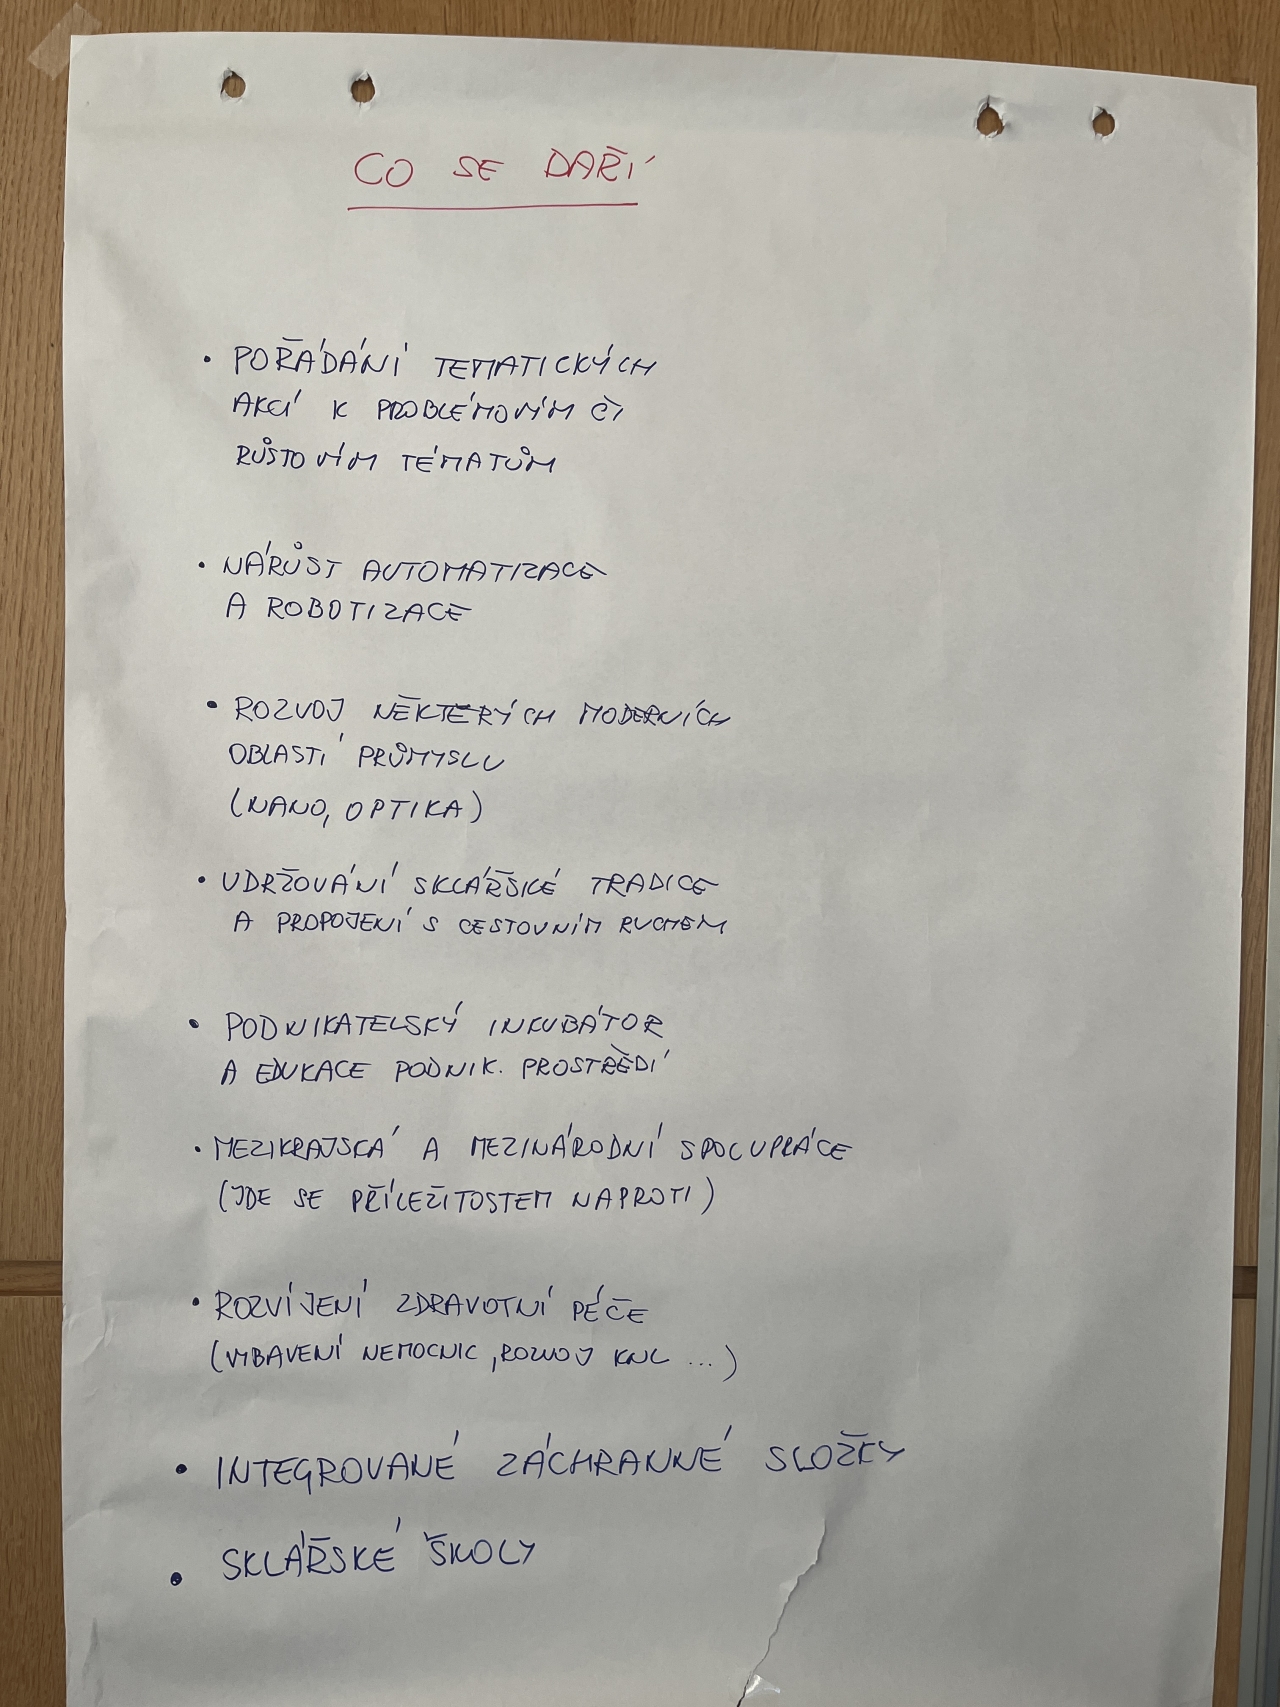 CO SE DAŘÍ
• POŘÁDÁNÍ TEMATICKÝCH
AKCÍ K PROBLÉMOVÍM ČI
RŮSTOVÍM TÉMATŮM
• NÁRŮST AUTOMATIZACE
A ROBOTIZACE
• ROZVOJ NĚKTERÝCH MODERNÍCH
OBLASTÍ PRŮMYSLU
(NANO, OPTIKA)
• UDRŽOVÁNÍ SKLÁŘSKÉ TRADICE
A PROPOJENÍ S CESTOVNÍM RUCHEM
• PODNIKATELSKÝ INKUBÁTOR
A EDUKACE PODNIK. PROSTŘEDÍ
• MEZIKRAJSKÁ A MEZINÁRODNÍ SPOLUPRÁCE
(JDE SE PŘÍLEŽITOSTEM NAPROTI)
• ROZVÍJENÍ ZDRAVOTNÍ PÉČE
(VYBAVENÍ NEMOCNIC, ROZVOJ KNL ...)
• INTEGROVANÉ ZÁCHRANNÉ SLOŽKY
• SKLÁŘSKÉ ŠKOLY